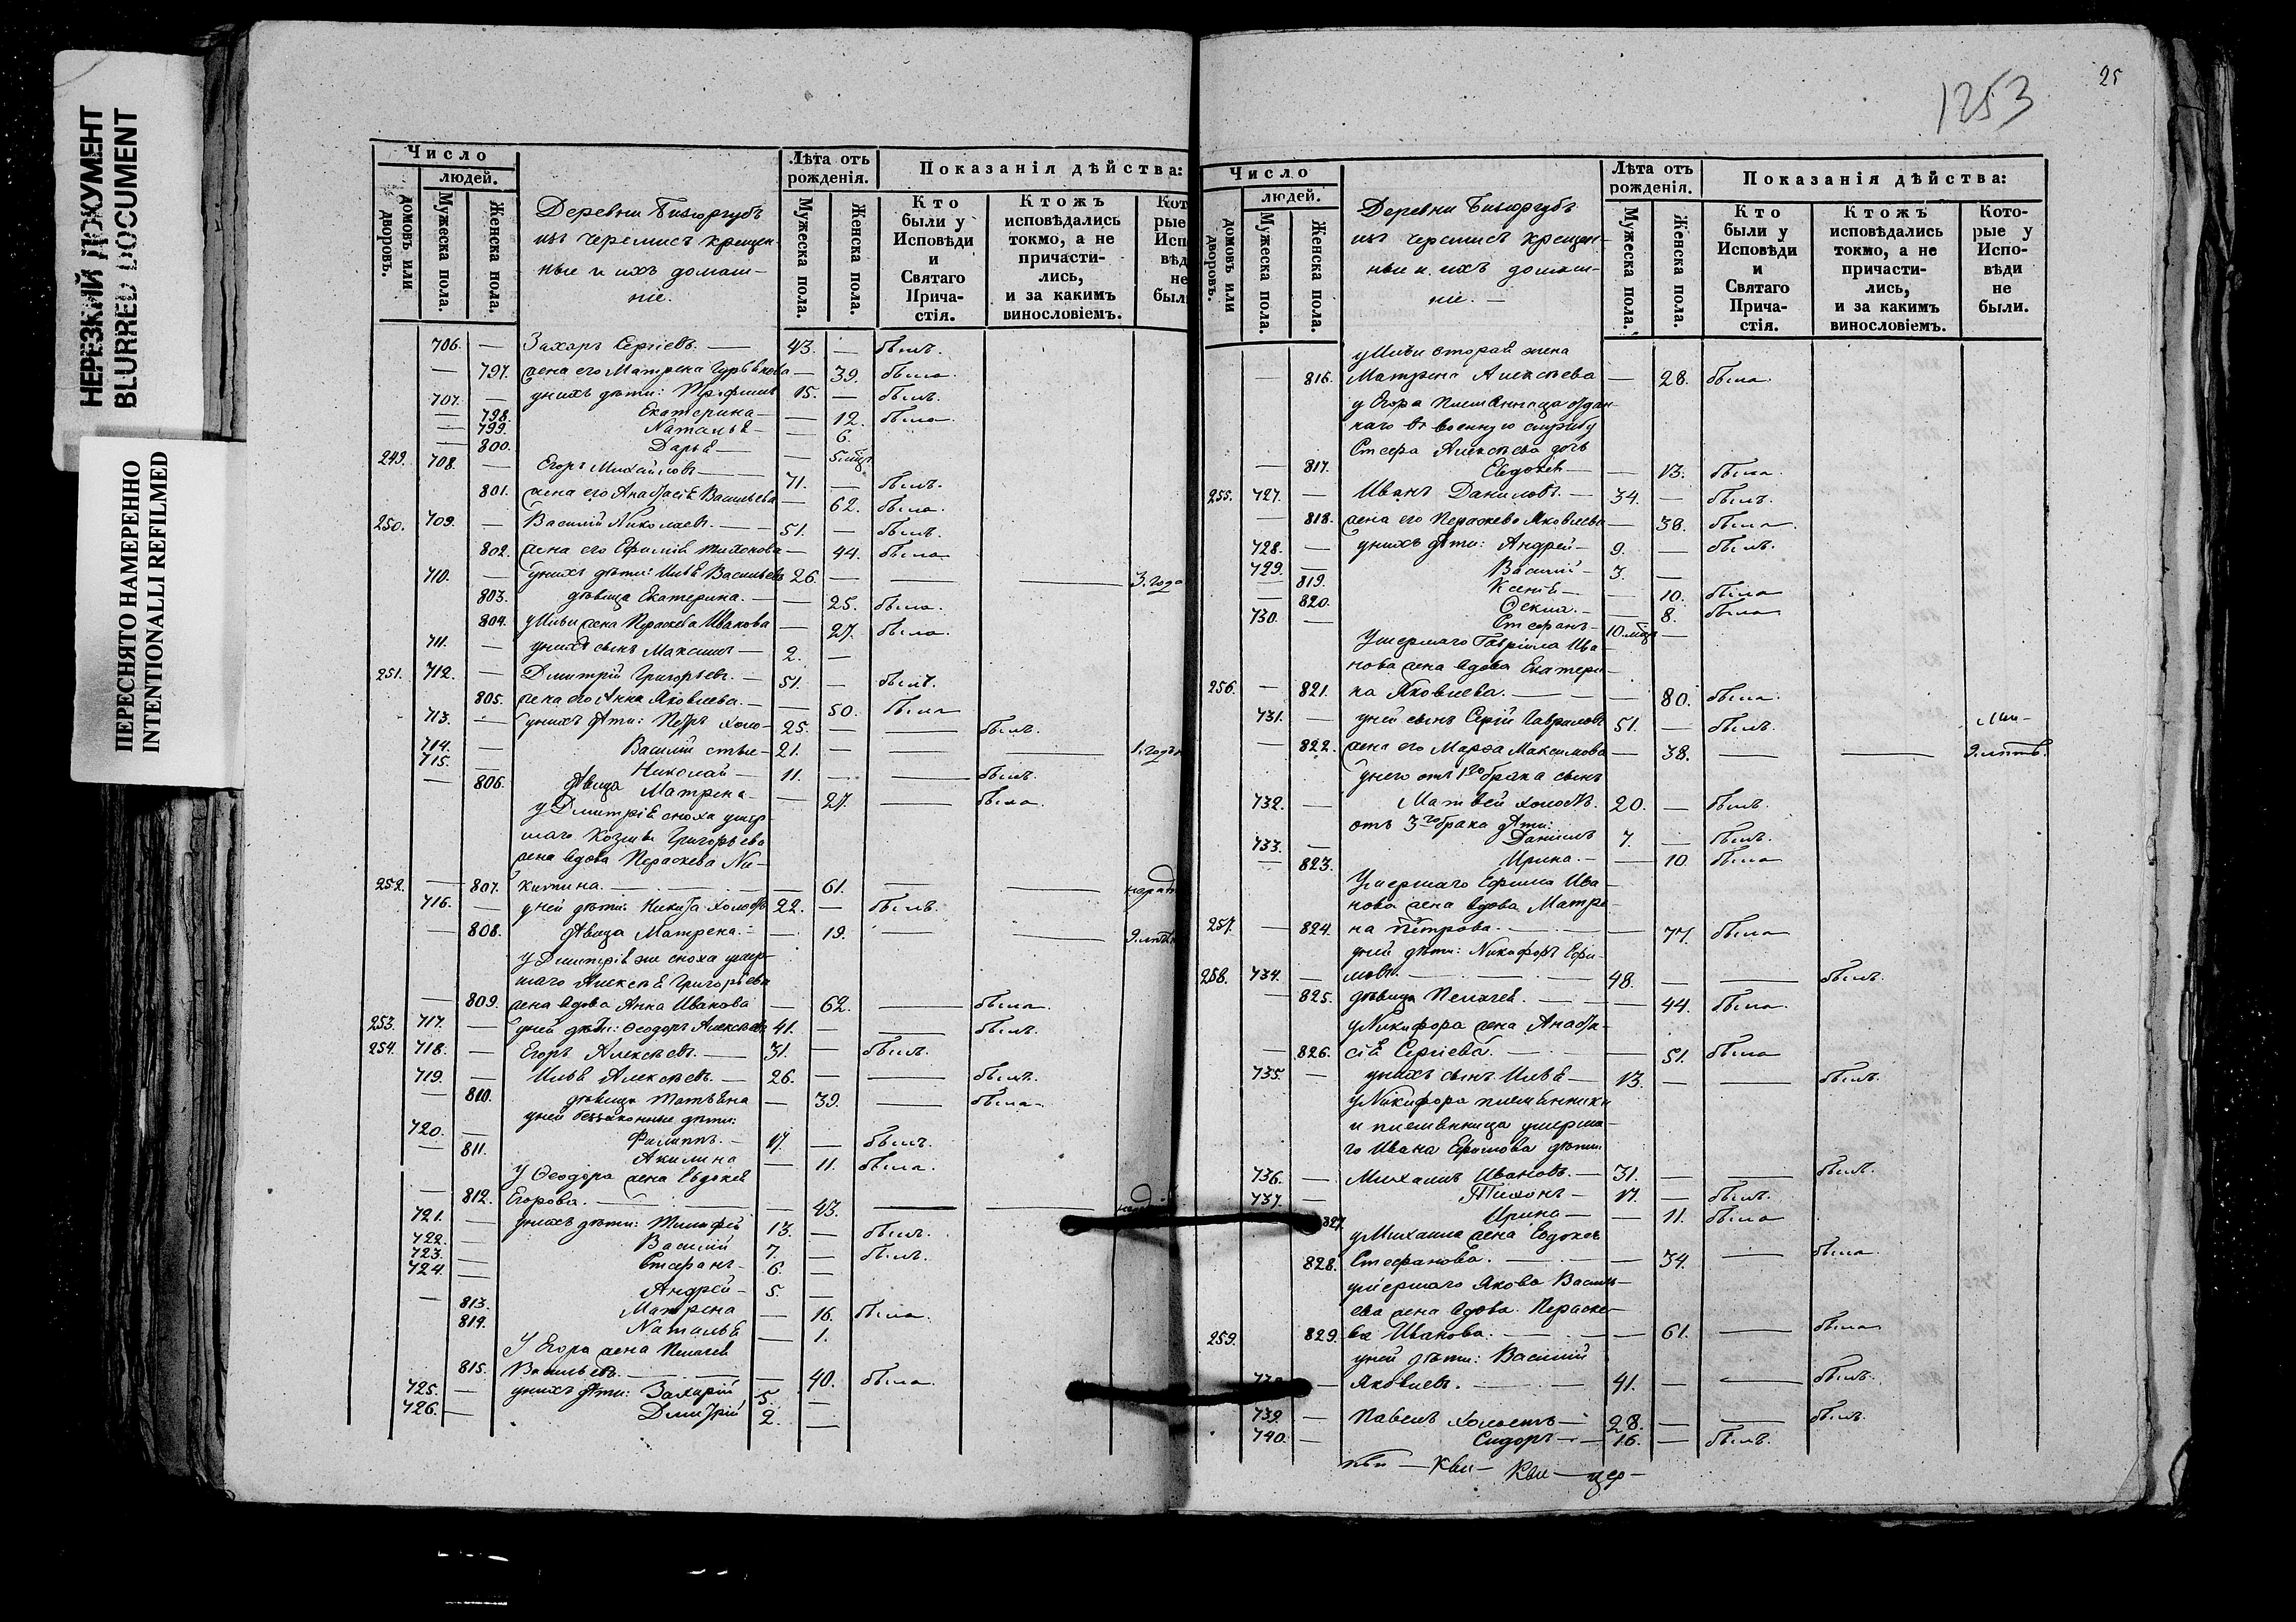 НЕРЕЗКИЙ ДОКУМЕНТ
BLURRED DOCUMENT
ПЕРЕСНЯТО НАМЕРЕННО
INTENTIONALLI REFILMED
Число
людей.
домовъ или дворовъ.
Мужеска пола.
Женска пола.
Деревни
изъ черемисъ крещен-
ные и ихъ домаш-
ніе.
Лѣта отъ рожденія.
Мужеска пола.
Женска пола.
Показанія дѣйства:
Кто были у Исповѣди и Святаго Прича-стія.
Ктожъ исповѣдались токмо, а не причасти-лись, и за какимъ винословіемъ.
Кот рые Исп вѣд не был
706. — Захаръ Сергіевъ. — 43. — былъ.
— 797. жена его Матрена — 39. была.
707. — у нихъ дѣти: 15. — былъ.
— 798. Екатерина — — 12. была.
— 799. Наталья — — 6.
— 800. Дарья — — 5.
249. 708. — Егоръ Михайловъ — 71. — былъ.
801. жена его Анастасія Васильева — 62. была.
250. 709. — Василій Николаевъ. — 51. — былъ.
802. жена его Ефимія Тихонова — 44. была
710. — у нихъ дѣти: Илья Васильевъ 26. — — — 3. года
803. дѣвица Екатерина. — — 25. была.
804. у Ильи жена Параскева Иванова — 27. была.
711. — у нихъ сынъ Максимъ — 2. —
251. 712. — Дмитрій Григорьевъ. — 51. — былъ.
805. жена его Анна Яковлева. — — 50. была
713. — у нихъ дѣти: Петръ холо- 25. — — былъ.
714. — Василій 21. — — — 1. годъ
715. — Николай — 11. — — былъ.
— 806. дѣвица Матрена — — 27. — была.
у Дмитрія сноха умер-
шаго Козьмы Григорьева
жена вдова Параскева Ни-
252. — 807. китина. — — 61. — —
716. — у ней дѣти: Никита холостъ 22. — былъ.
— 808. дѣвица Матрена. — — 19. — — 9. лѣтъ
у Дмитрія же сноха умер-
шаго Алексѣя Григорьева
— 809. жена вдова Анна Иванова — 62. — была
253. 717. — у ней дѣти: Ѳеодоръ Алексѣевъ 41. — — былъ.
254. 718. — Егоръ Алексѣевъ. — 31. — былъ.
719. — Илья Алексѣевъ. — 26. — — былъ.
— 810. дѣвица Татьяна — 39. — была
у ней беззаконные дѣти:
720. — Филиппъ. — 17. — былъ.
— 811. Акилина — 11. была.
У Ѳеодора жена Евдокія
— 812. Егорова. — — 43. — —
721. — у нихъ дѣти: Тимофей 13. — былъ.
722. — Василій 7. — былъ.
723. — Стефанъ — 6. —
724. — Андрей — 5. —
— 813. Матрена — 16. была.
814. Наталья — 1.
У Егора жена Пелагея
815. Васильева. — — 40. была.
725. — у нихъ дѣти: Захарій 5. —
726. — Дмитрій 2. —
1253
25
Число
людей.
домовъ или дворовъ.
Мужеска пола.
Женска пола.
Деревни
изъ черемисъ крещен-
ные и ихъ домаш-
ніе. —
Лѣта отъ рожденія.
Мужеска пола.
Женска пола.
Показанія дѣйства:
Кто были у Исповѣди и Святаго Прича-стія.
Ктожъ исповѣдались токмо, а не причасти-лись, и за какимъ винословіемъ.
Кото-рые у Испо-вѣди не были.
у Ильи вторая жена
— 816. Матрена Алексѣева — 28. была.
у Егора племянница отдан-
наго въ военную службу
Стефана Алексѣева дочь
— 817. Евдокія — — 13. была.
255. 727. — Иванъ Даниловъ. — 34. — былъ.
— 818. жена его Параскева Яковлева — 38. была.
728. — у нихъ дѣти: Андрей — 9. — былъ.
729. — Василій — 3. —
— 819. Ксенія — — 10. была
— 820. Ѳекла. — — 8. была
730. — Стефанъ — 10. —
Умершаго Гавріила Ива-
нова жена вдова Екатери-
256. — 821. на Яковлева. — — 80. была.
731. — у ней сынъ Сергій Гавриловъ 51. — былъ.
— 822. жена его Марѳа Максимова — 38. — — 9. лѣтъ.
у него отъ 1го брака сынъ
732. — Матвей холостъ. 20. — былъ.
отъ 3го брака дѣти:
733. — Даніилъ 7. — былъ.
— 823. Ирина. — — 10. была
Умершаго Ефима Ива-
нова жена вдова Матре-
257. — 824. на Петрова. — — 77. была
у ней дѣти: Никифоръ Ефи-
258. 734. — мовъ. — 48. — — былъ.
— 825. дѣвица Пелагея. — — 44. была.
у Никифора жена Анаста-
— 826. сія Сергіева. — — 51. была
735. — у нихъ сынъ Илья — 13. — — былъ.
у Никифора племянники
и племянница умерша-
го Ивана Ефимова дѣти
736. — Михаилъ Ивановъ. — 31. — — былъ.
737. — Тихонъ — 17. — былъ.
827. Ирина — — 11. была
у Михаила жена Евдокія
828. Стефанова. — — 34. — была.
умершаго Якова Василь-
ева жена вдова Параске-
259. 829. ва Иванова. — — 61. — была
у ней дѣти: Василій
— Яковлевъ. — 41. — — былъ.
739. — Павелъ холостъ — 28. — — былъ.
740. — Сидоръ — 16. — былъ.